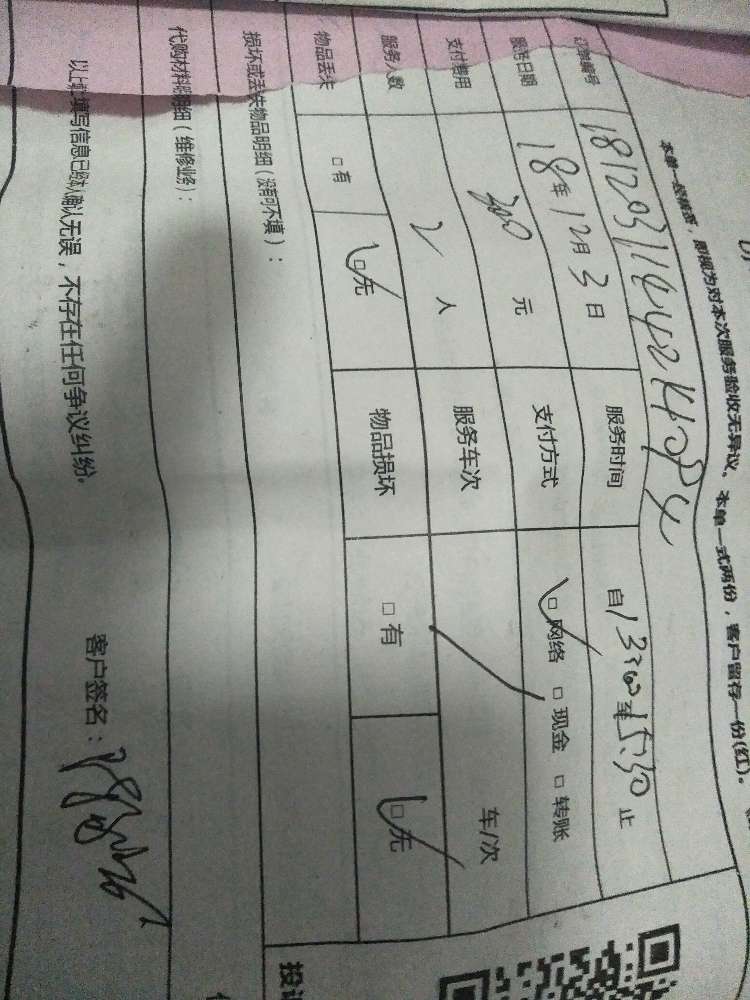 本单一经签署，则视为对本次服务验收无异议。本单一式两份，客户留存一份(红)。
订单编号
服务日期 18年12月3日 服务时间 自13:30至15:30止
支付费用 300元 支付方式 □网络 □现金 □转账
服务人数 2人 服务车次 车/次
物品丢失 □有 □无 物品损坏 □有 □无
损坏或丢失物品明细（没有可不填）：
代购材料明细（维修业务）：
以上填写信息已经本人确认无误，不存在任何争议纠纷。
客户签名：